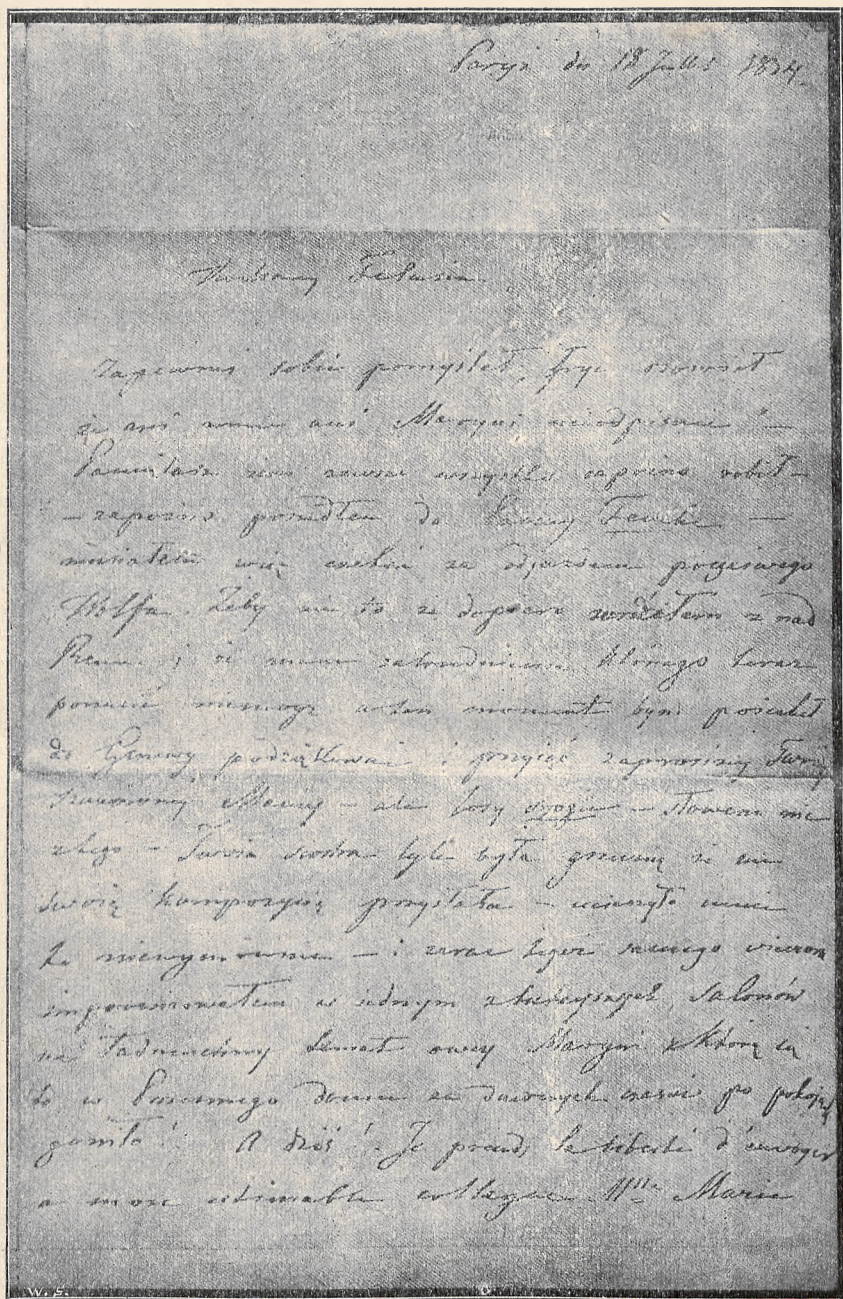 Paryż dn 18 Julls 1834.
Kochany Felusiu
Zapewneś sobie pomyślał, Fryc
że ani mnie ani Maryni nieodpisuie" –
Pamiętasz żem zawsze wszystko zapóźno robił –
– zapóźno poszedłem do Panny Fauche –
musiałem więc czekać za odjazdem poczciwego
Wolfa. Żeby nie to że dopiero wróciłem z nad
Renu i że mam zatrudnienie którego teraz
porzucić niemogę w ten moment bym pośpieszył
do Genewy podziękować i przyjąć zaprosiny Twojej
Szanownej Mamy – ale losy srogie – słowem nic
z tego – Twoia siostra tyle była grzeczną że mi
swoią kompozycyą przysłała – ucieszyło mnie
to niewymownie – i zaraz tegoż samego wieczora
improwizowałem w iednym z tuteyszych Salonów
na ładniuchny temat owey Maryni z którą się
to w Pszennego domu za dawnych czasów po pokojach
goniło! A dziś! Je prends la liberté d'envoyer
à mon estimable collègue Mlle Marie
W. S.